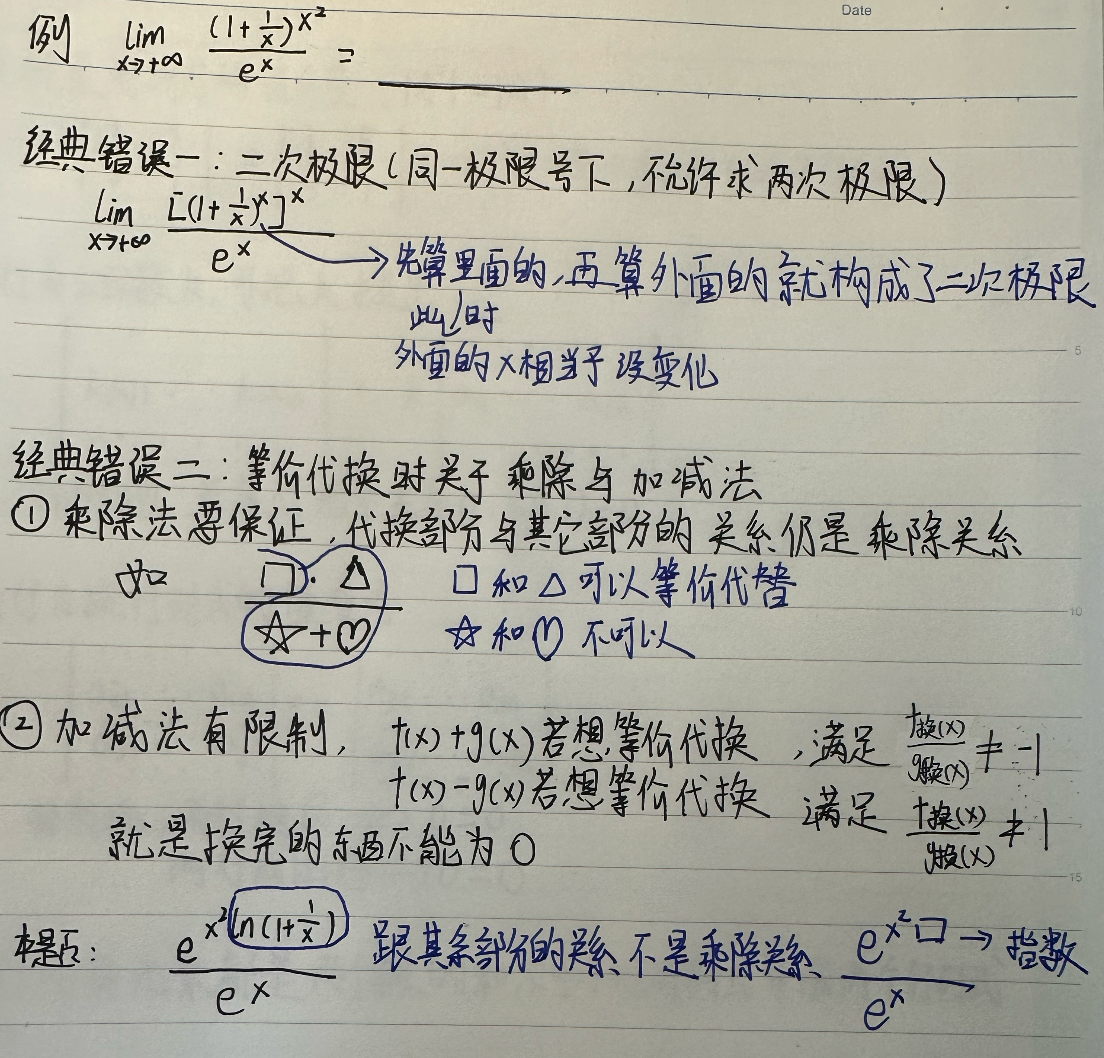 Date
例 lim x→+∞ (1+1/x)^x² / e^x = ______
经典错误一:二次极限(同一极限号下,不允许求两次极限)
lim x→+∞ [(1+1/x)^x]^x / e^x
→先算里面的,再算外面的就构成了二次极限
此时
外面的x相当于没变化
5
经典错误二:等价代换时关于乘除与加减法
① 乘除法要保证,代换部分与其它部分的关系仍是乘除关系
如 □·△ / ☆+♡ □和△可以等价代替
☆和♡不可以
10
② 加减法有限制, f(x)+g(x)若想等价代换,满足 f换(x)/g换(x) ≠ -1
f(x)-g(x)若想等价代换 满足 f换(x)/g换(x) ≠ 1
就是换完的东西不能为0
15
本题: e^(x² ln(1+1/x)) / e^x 跟其余部分的关系不是乘除关系 e^(x²□) / e^x → 指数